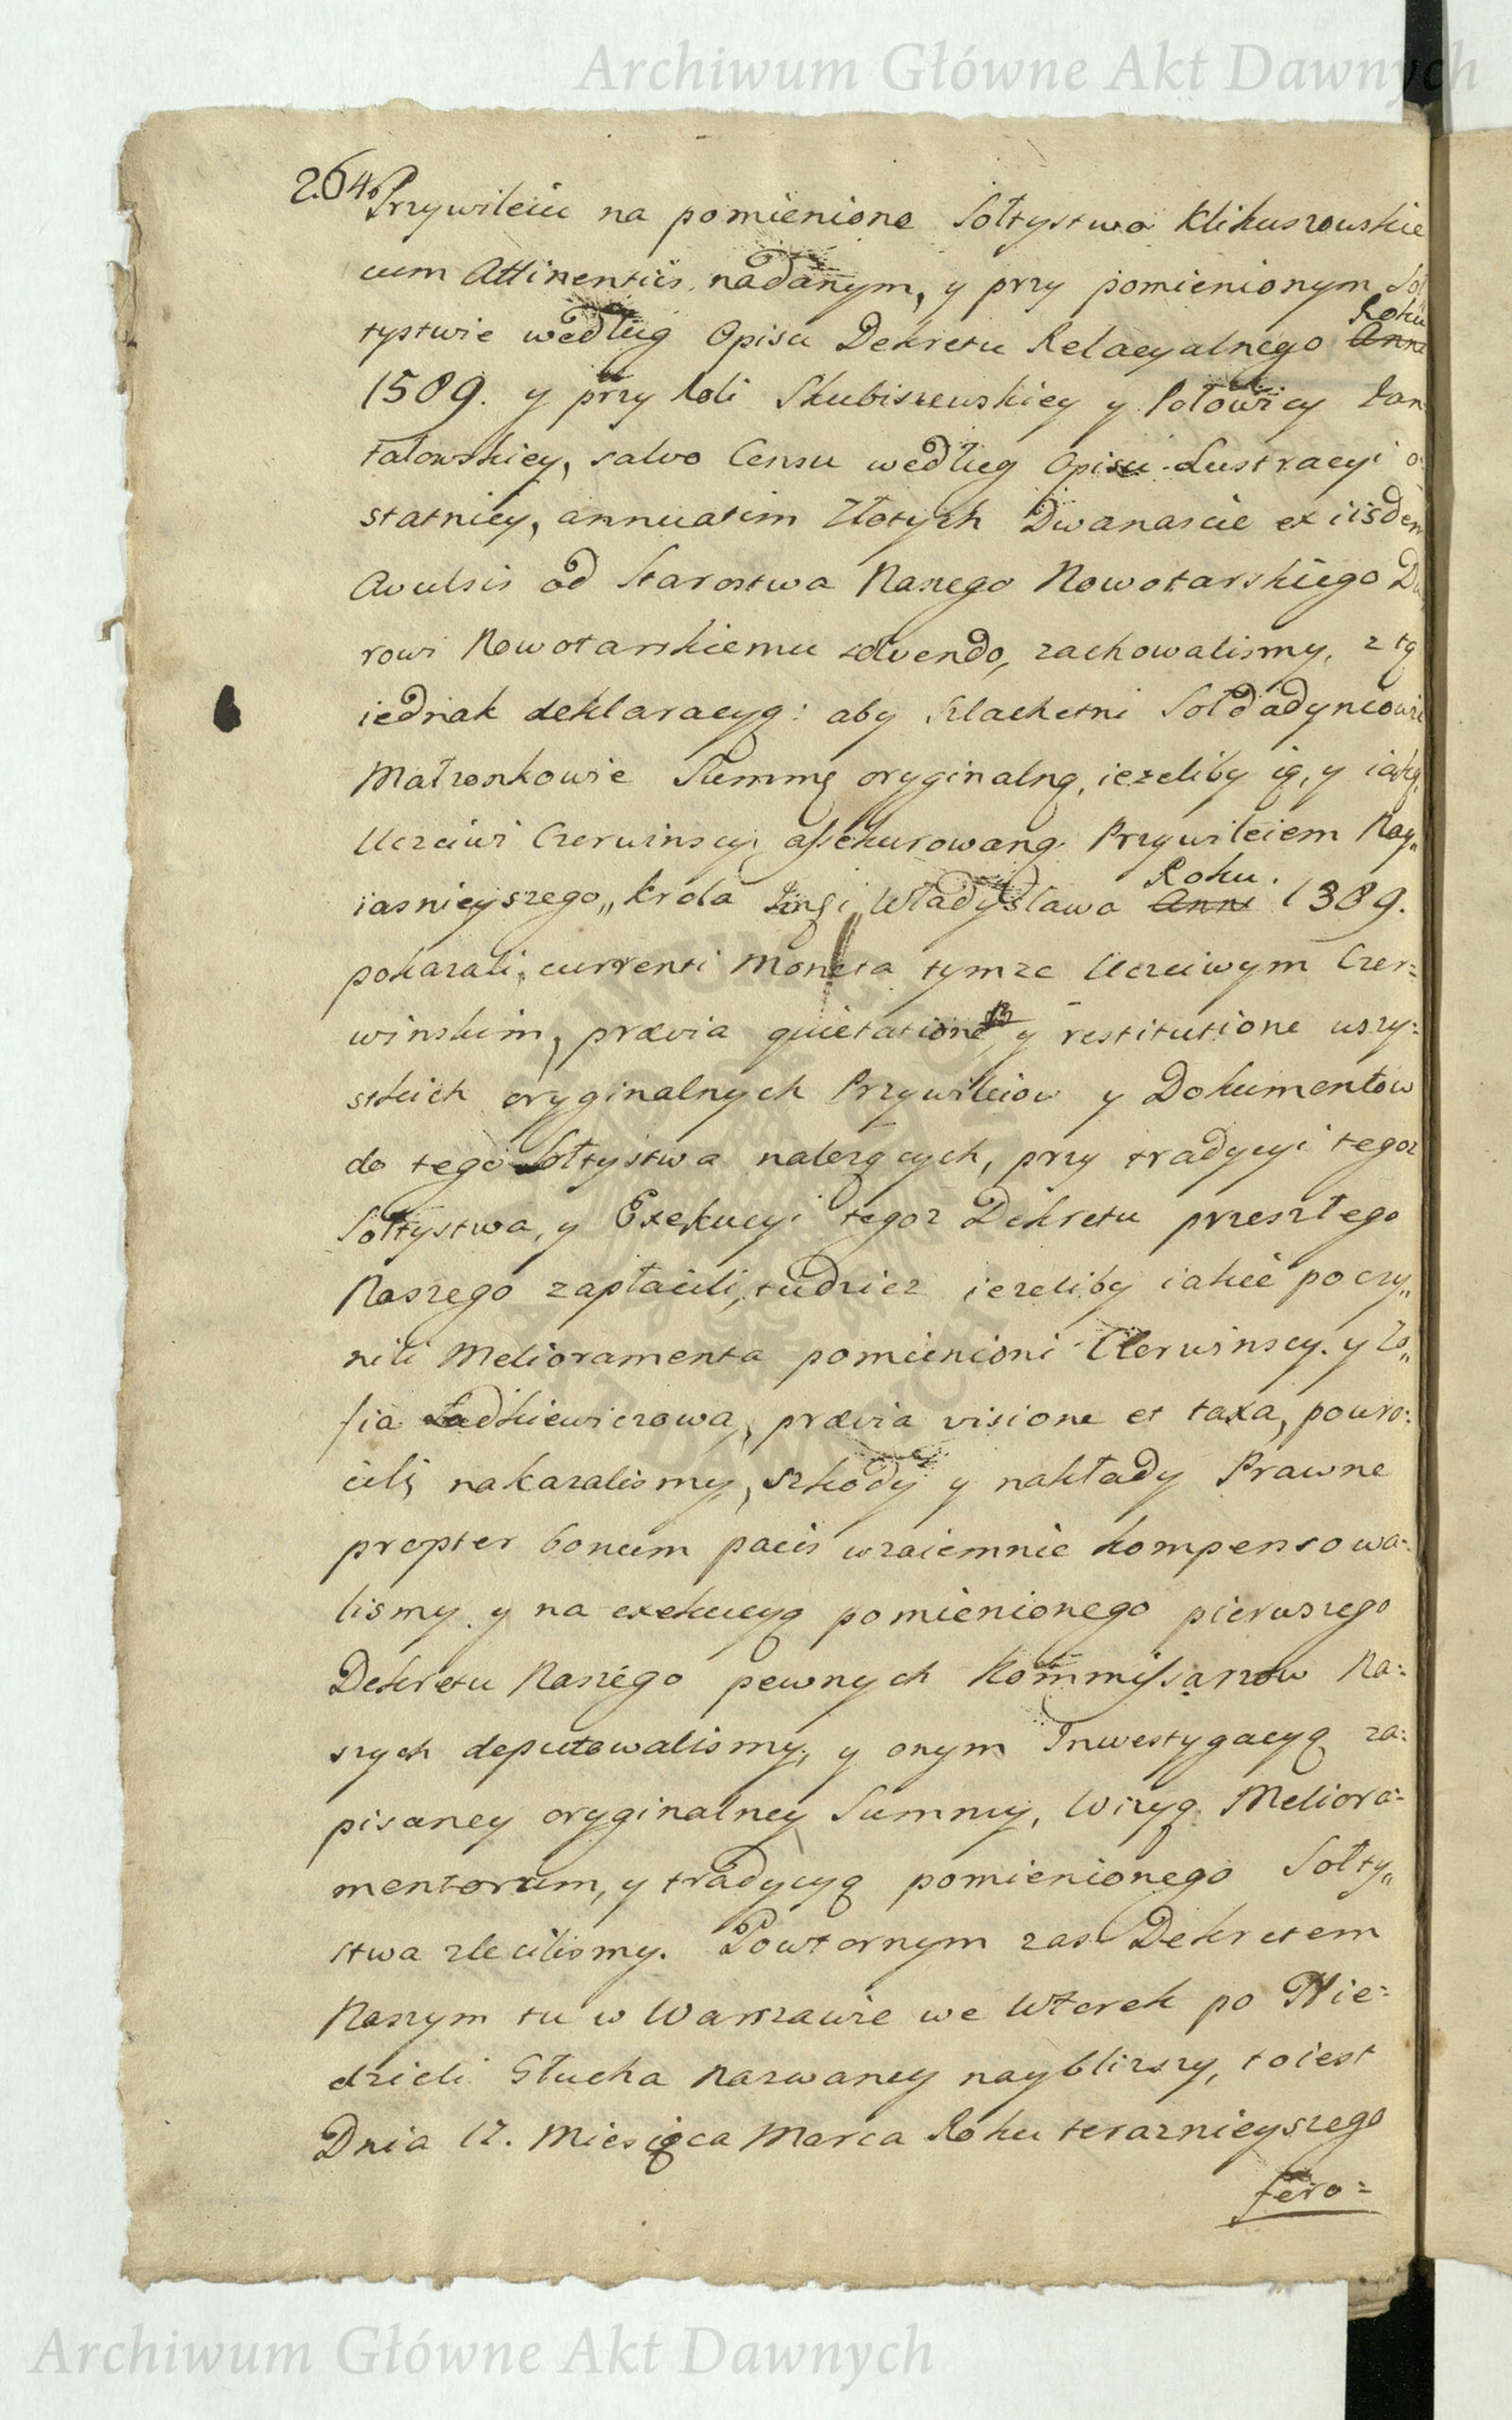 Archiwum Główne Akt Dawnych
264.
Przywileiu na pomienione Sołtystwo Klikuszowskie
cum Attinentiis nadanym, y przy pomienionym Soł
tystwie według Opisu Dekretu Relacyalnego Anno Roku
1589. y przy Roli Skubiszewskiey y Połowicy Pan
tałowskiey, salvo Censu według Opisu Lustracyi o
statniey, annuatim Złotych Dwanascie ex iisdem
Avulsis od Starostwa Naszego Nowotarskiego
rowi Nowotarskiemu solvendo, zachowalismy, z tą
iednak deklaracyą: aby Szlachetni Sołdadyncowie
Małzonkowie Summę oryginalną, iezeliby ią, y iaką
Uczciwi Czerwinscy assekurowaną Przywileiem Nay„
iasnieyszego „ Krola Władysława Anno Roku. 1389.
pokazali, currenti Moneta tymze Uczciwym Czer=
winskim, prævia quietatione, y restitutione wszy=
stkich oryginalnych Przywileiow y Dokumentow
do tego Sołtystwa nalezących, przy tradycyi tegoz
Sołtystwa, y Exekucyi tegoz Dekretu przeszłego
Naszego zapłacili, tudziez iezeliby iakie poczy„
nili Melioramenta pomienioni Czerwinscy y Zo„
fia Ladkiewiczowa, prævia visione et taxa, powro=
cili nakazalismy, szkody y nakłady Prawne
propter bonum pacis wzaiemnie kompensowa=
lismy y na exekucyą pomienionego pierwszego
Dekretu Naszego pewnych Kommissarzow Na=
szych deputowalismy, y onym Inwestygacyą za=
pisaney oryginalney Summy, Wizyą Meliora=
mentorum, y tradycyą pomienionego Sołty„
stwa zlecilismy. Powtornym zas Dekretem
Naszym tu w Warszawie we Wtorek po Nie=
dzieli Głucha nazwaney nayblizszy, toiest
Dnia 12. Miesiąca Marca Roku teraznieyszego
fero=
Archiwum Główne Akt Dawnych